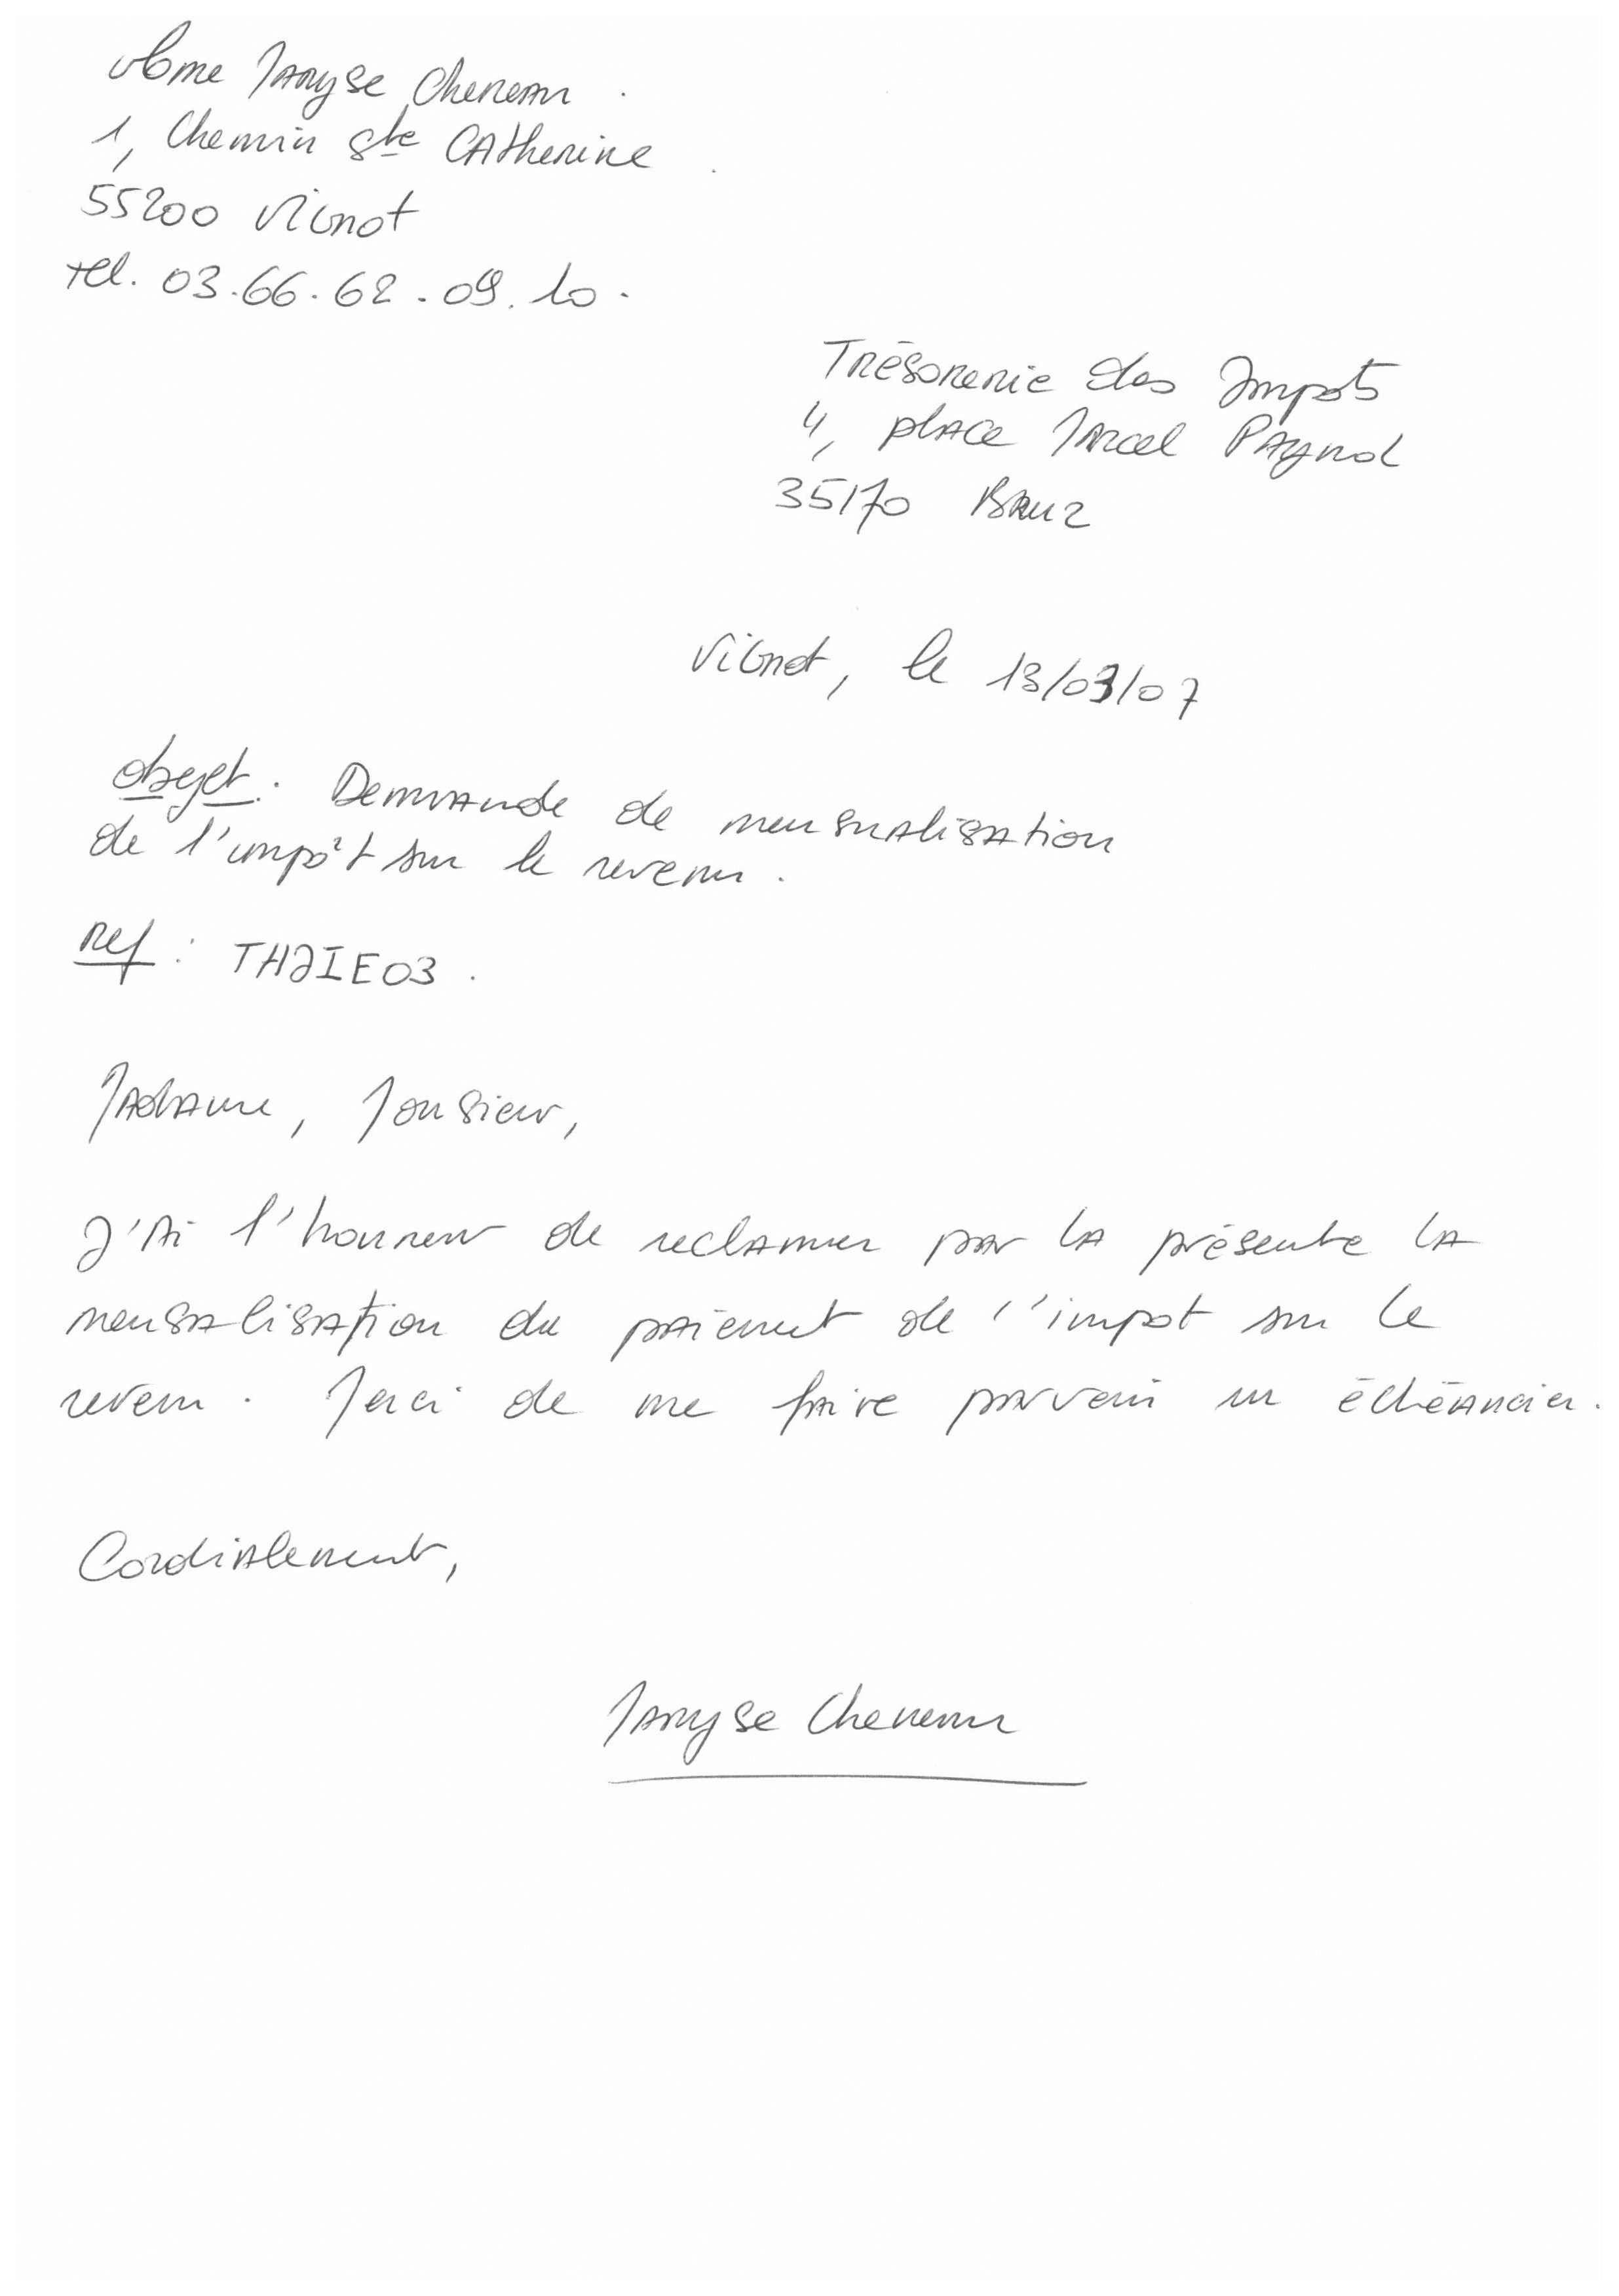 Mme Maryse Cheneau
1, Chemin Ste Catherine
55200 Vignot
tel. 03.66.62.09.10.
Trésorerie des Impots
4, place Marcel Pagnol
35170 Bruz
Vignot, le 13/03/07
objet : Demande de mensualisation
de l'impôt sur le revenu.
Ref : THJIE03.
Madame, Monsieur,
J'ai l'honneur de reclamer par la présente la
mensalisation du paiement de l'impot sur le
revenu. Merci de me faire parvenir un échéancier.
Cordialement,
Maryse Cheneau